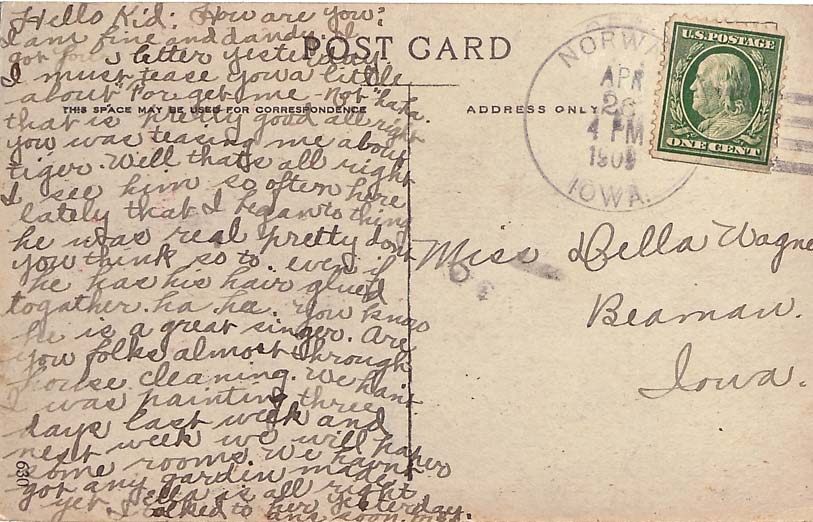 Hello Kid. How are you?
I am fine and dandy. I
got your letter yesterday
I must tease you a little
about "For-get-me-Not" haha.
that is pretty good all right
you was teasing me about
tiger. Well that's all right
I see him so often here
lately that I began to thing
he was real pretty dont
you think so to. even if
he has his hair glued
togather. ha. ha. You know
he is a great singer. Are
you folks almost through
house cleaning. We haint
I was painting three
days last week and
next week we will paper
some rooms. We havnt
got any garden made
yet. Ella is all right
I talked to her yesterday.
ans soon.
POST CARD
THIS SPACE MAY BE USED FOR CORRESPONDENCE
ADDRESS ONLY
NORWAY
APR
26
4 PM
1909
IOWA.
U.S. POSTAGE
ONE CENT
Miss Della Wagne
Beaman.
Iowa.
630